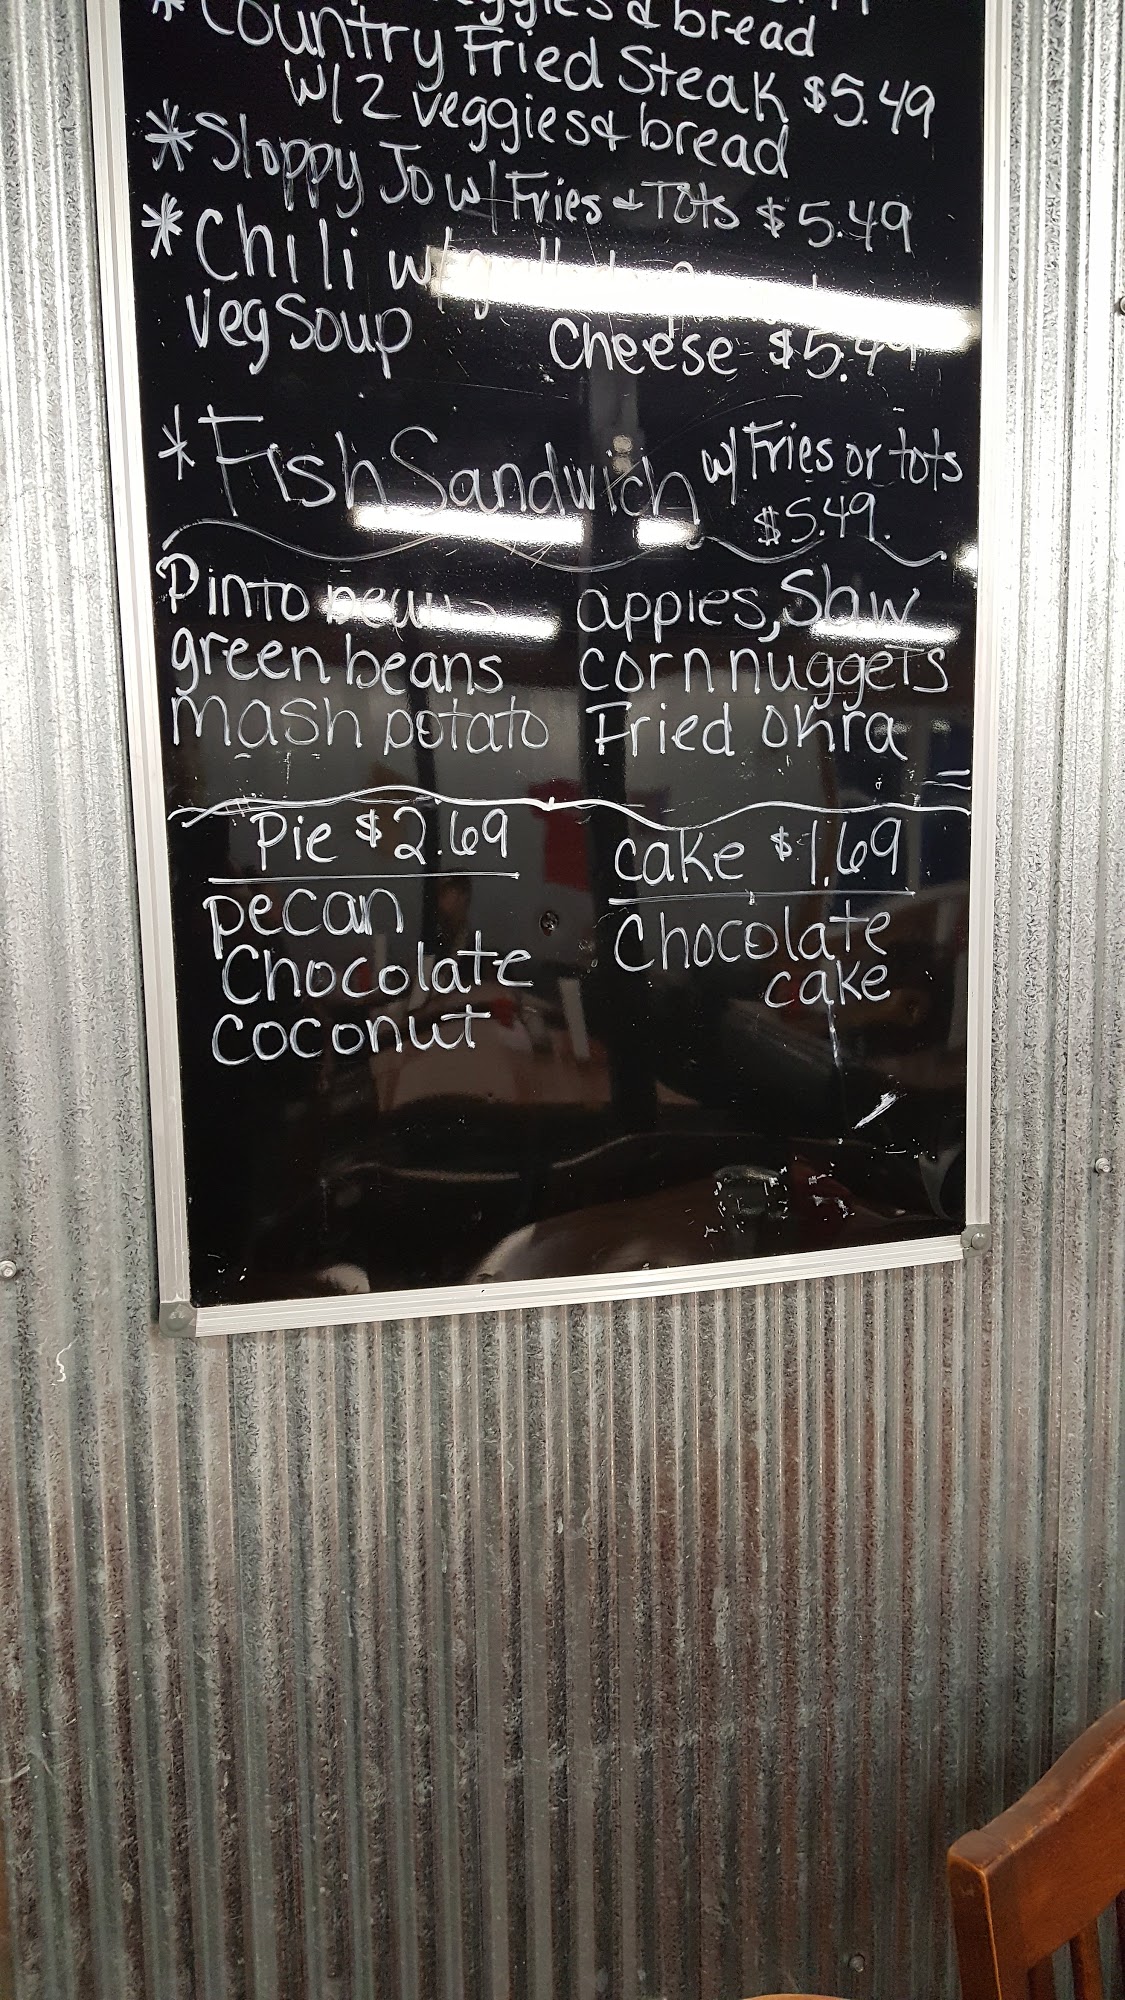 veggies & bread
* Country Fried Steak $5.49
W/ 2 veggies & bread
* Sloppy Jo w/ Fries & Tots $5.49
* Chili w/
Veg Soup Cheese $5.49
* Fish Sandwich w/ Fries or tots
$5.49.
Pinto beans apples, Slaw
green beans corn nuggets
mash potato Fried okra
Pie $2.69 cake $1.69
pecan Chocolate
Chocolate cake
coconut